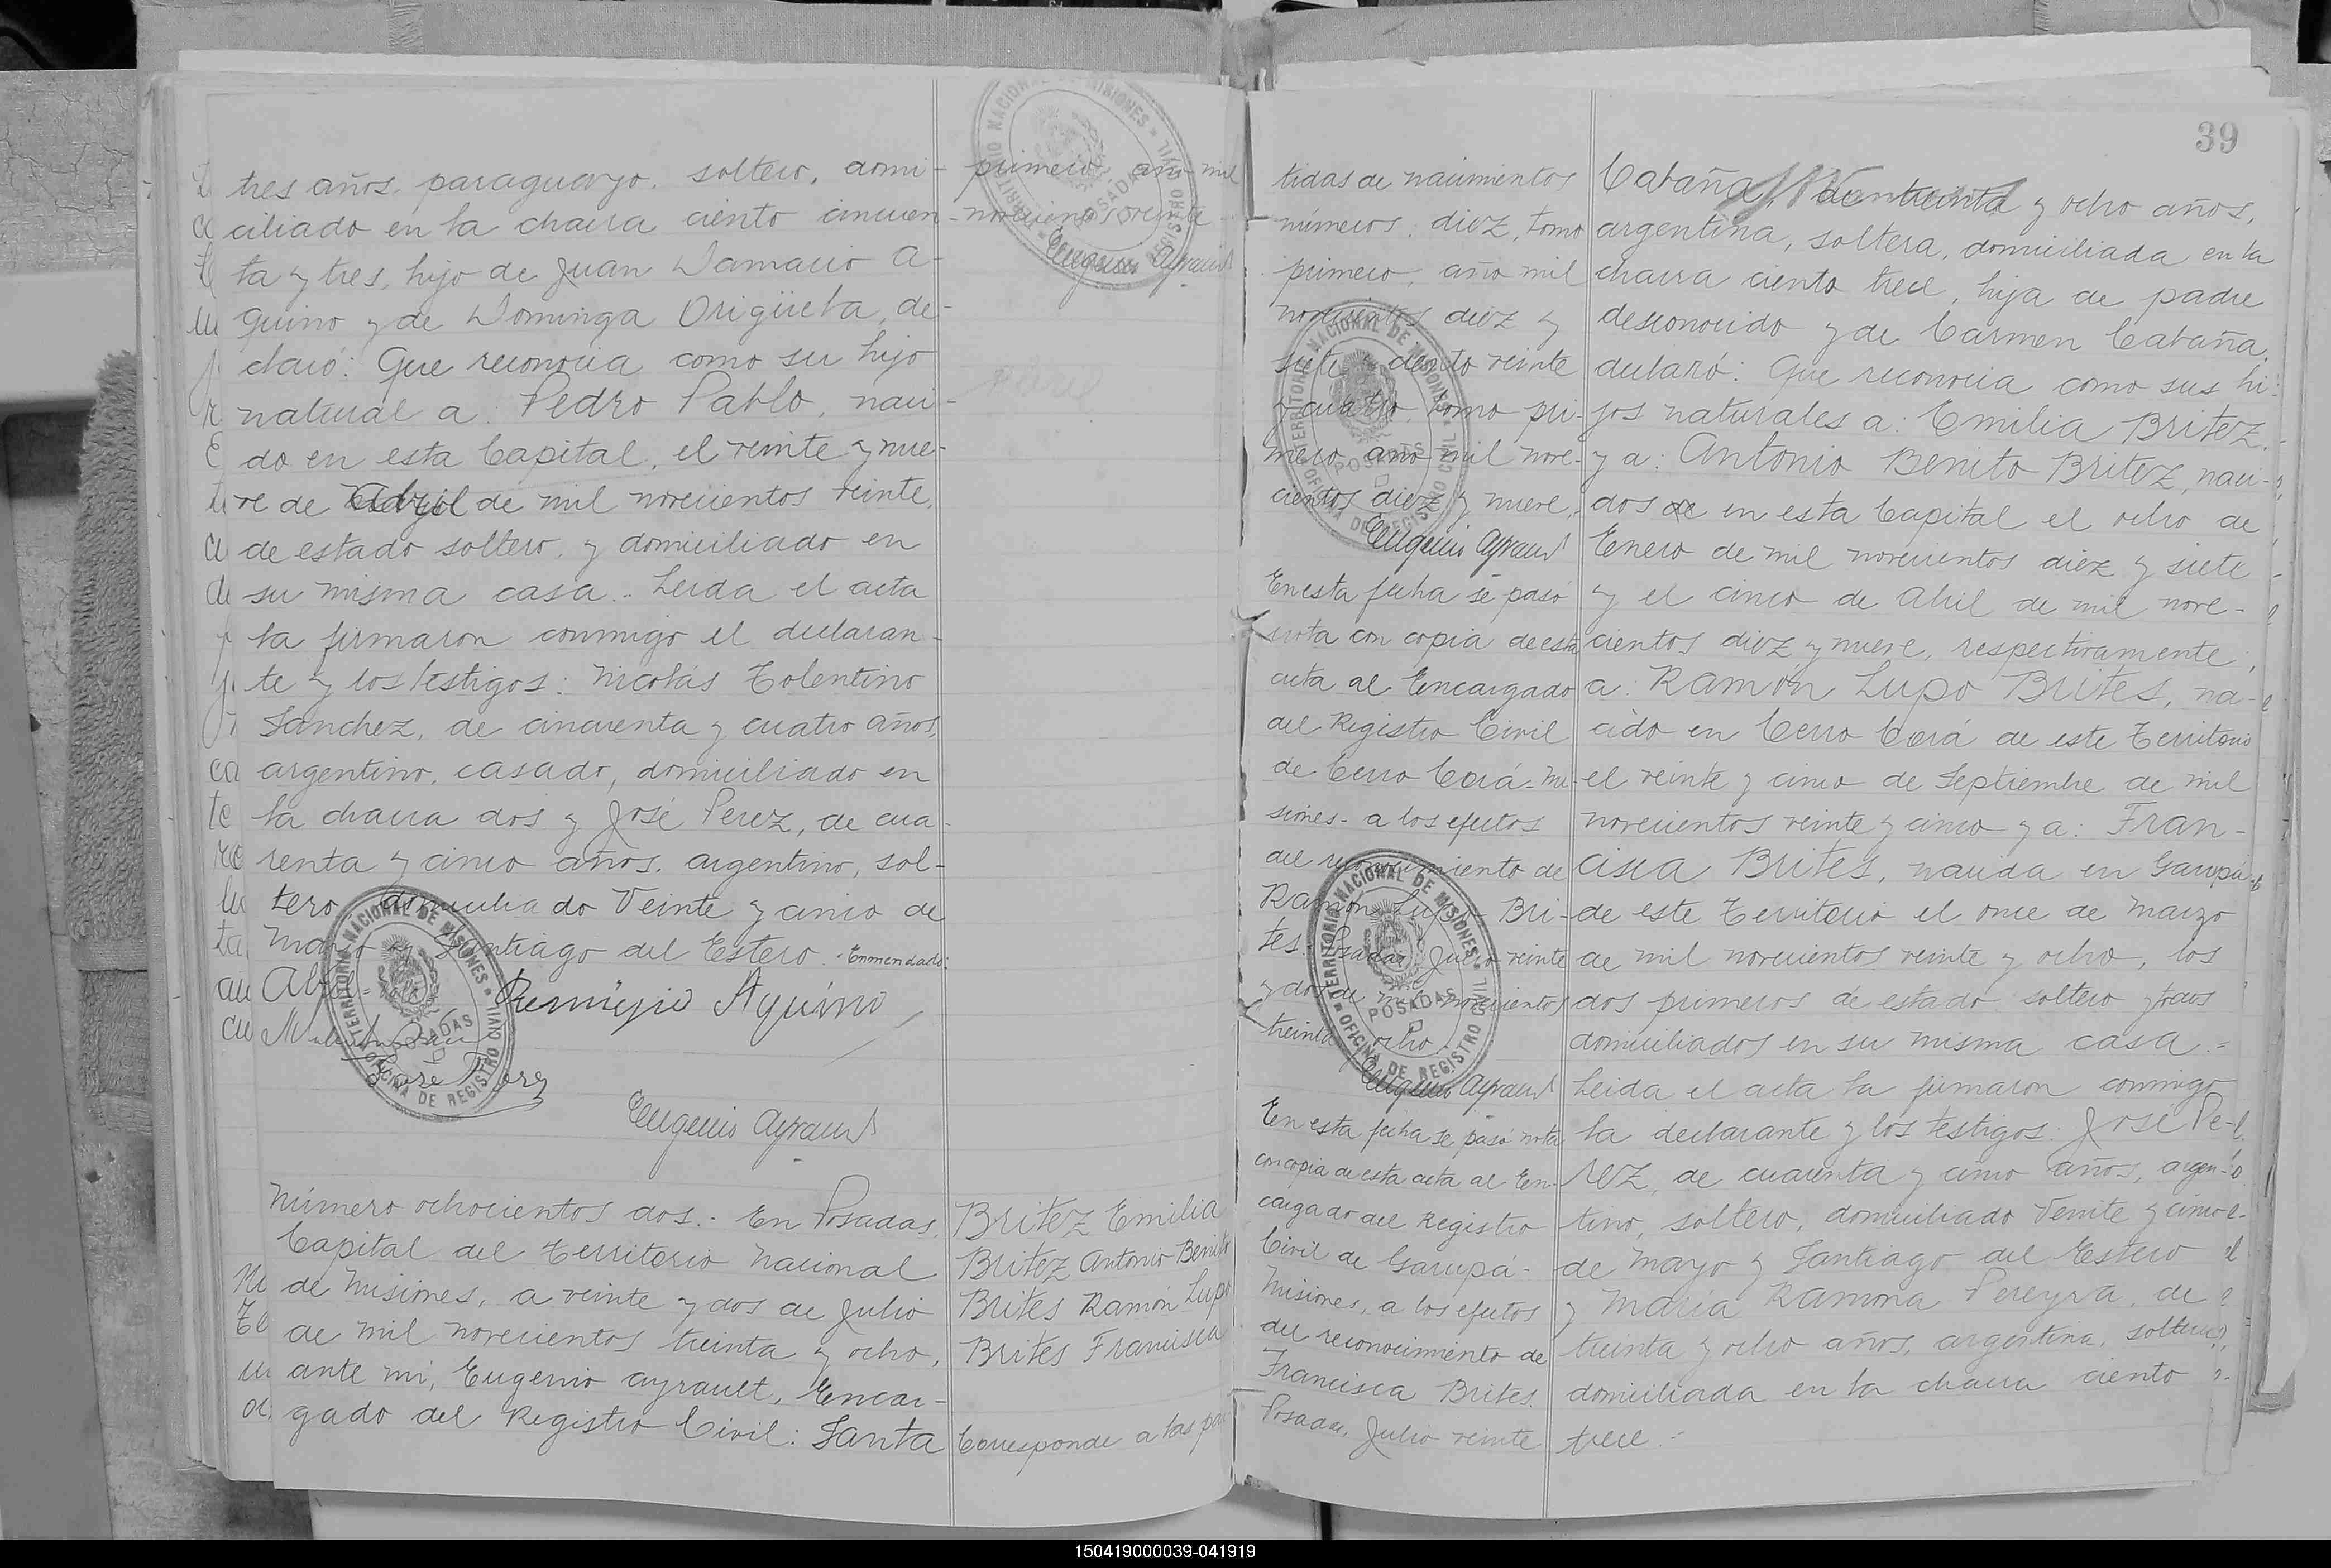 tres años, paraguayo, soltero, domi-
ciliado en la chacra ciento cincuen-
ta y tres, hijo de Juan Damacio A-
quino y de Dominga Origüela, de-
claró: Que reconocia como su hijo
natural a: Pedro Pablo, naci-
do en esta Capital, el veinte y nue-
ve de Abril de mil novecientos veinte,
de estado soltero, y domiciliado en
su misma casa.- Leida el acta
la firmaron conmigo el declaran-
te y los testigos: Nicolás Tolentino
Sanchez, de cincuenta y cuatro años,
argentino, casado, domiciliado en
la chacra dos y José Perez, de cua-
renta y cinco años, argentino, sol-
tero, domiciliado Veinte y cinco de
Mayo y Santiago del Estero.- Enmendado:
Abril=
Remigio Aquino
José Perez
Eugenio Ayrault
primero, año mil
novecientos veinte
Eugenio Ayrault
TERRITORIO NACIONAL DE MISIONES
OFICINA DE REGISTRO CIVIL
POSADAS
Número ochocientos dos.- En Posadas,
Capital del Territorio Nacional
de Misiones, a veinte y dos de Julio
de mil novecientos treinta y ocho,
ante mi, Eugenio Ayrault, Encar-
gado del Registro Civil: Santa
Britez Emilia
Britez Antonio Benito
Brites Ramón Lupo
Brites Francisca
Corresponde a las par
39
tidas de nacimientos
números: diez, tomo
primero, año mil
novecientos diez y
siete y ciento veinte
y cuatro, tomo pri-
mero, año mil nove-
cientos diez y nueve.
Eugenio Ayrault
En esta fecha se pasó
nota con copia de esta
acta al Encargado
del Registro Civil
de Cerro Corá-Mi-
siones- a los efectos
del reconocimiento de
Ramón Lupo Bri-
tes. Posadas, Julio veinte
y dos de mil novecientos
treinta y ocho.
Eugenio Ayrault
En esta fecha se pasó nota
con copia de esta acta al En-
cargado del Registro
Civil de Garupá-
Misiones, a los efectos
del reconocimiento de
Francisca Brites.
Posadas, Julio veinte
Cabaña, de treinta y ocho años,
argentina, soltera, domiciliada en la
chacra ciento trece, hija de padre
desconocido y de Carmen Cabaña,
declaró: Que reconocia como sus hi-
jos naturales a: Emilia Britez
y a: Antonio Benito Britez, naci-
dos de en esta Capital el ocho de
Enero de mil novecientos diez y siete
y el cinco de Abril de mil nove-
cientos diez y nueve, respectivamente,
a: Ramón Lupo Brites, na-
cido en Cerro Corá de este Territorio
el veinte y cinco de Septiembre de mil
novecientos veinte y cinco y a: Fran-
cisca Brites, nacida en Garupá
de este Territorio el once de Marzo
de mil novecientos veinte y ocho, los
dos primeros de estado soltero y todos
domiciliados en su misma casa.-
Leida el acta la firmaron conmigo
la declarante y los testigos: José Pe-
rez, de cuarenta y cinco años, argen-
tino, soltero, domiciliado Veinte y cinco
de Mayo y Santiago del Estero
y Maria Ramona Pereyra, de
treinta y ocho años, argentina, soltera,
domiciliada en la chacra ciento
trece.-
TERRITORIO NACIONAL DE MISIONES
OFICINA DE REGISTRO CIVIL
POSADAS
150419000039-041919